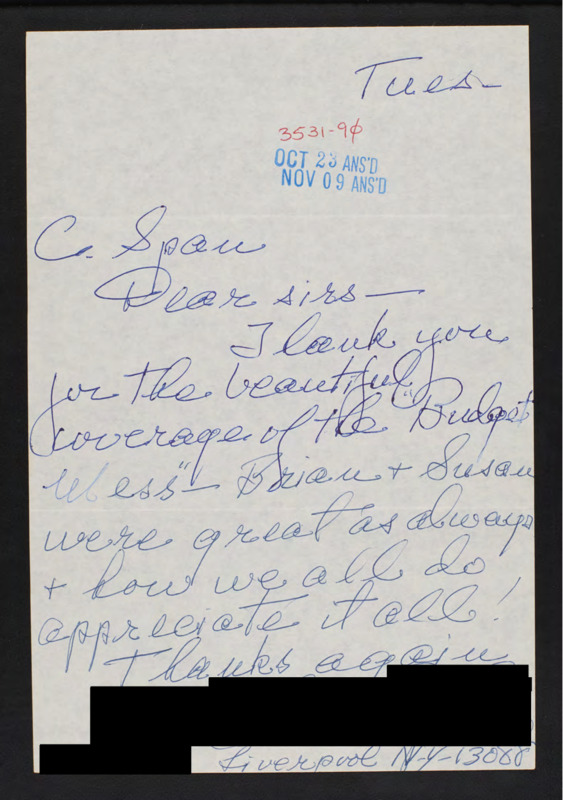 Tues-
3531-90
OCT 23 ANS'D
NOV 09 ANS'D
C. Span
Dear sirs —
Thank you
for the beautiful
coverage of the "Budget
Mess" - Brian + Susan
were great as always
+ how we all do
appreciate it all!
Thanks again
Liverpool N-Y-13088